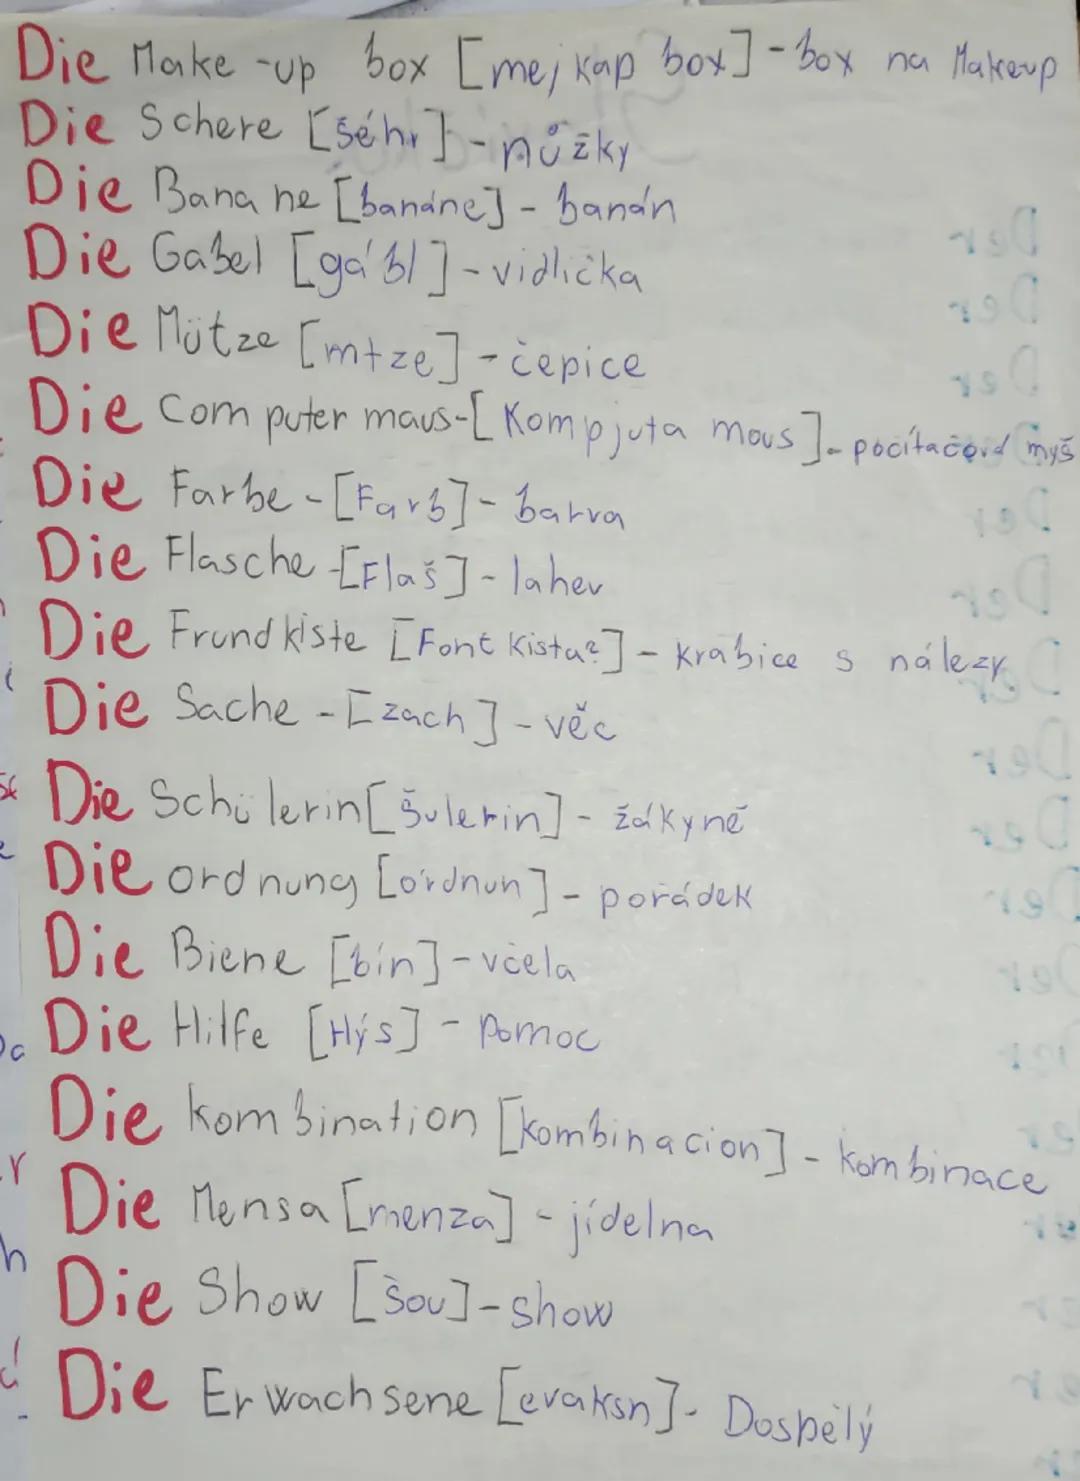 Die Make-up box [mejkap box] - box na Makeup
Die Schere [šéhr] - nůžky
Die Banane [banáne] - banán
Die Gabel [gábl] - vidlička
Die Mütze [mtze] - čepice
Die Computer maus - [Kompjuta maus] - počítačová myš
Die Farbe - [Farb] - barva
Die Flasche - [Flaš] - lahev
Die Frundkiste [Font Kista?] - krabice s nálezy
Die Sache - [zach] - věc
Die Schülerin [šulerin] - žákyně
Die ordnung [órdnun] - pořádek
Die Biene [bín] - včela
Die Hilfe [Hýs] - Pomoc
Die kombination [kombinacion] - kombinace
Die Mensa [menza] - jídelna
Die Show [šou] - show
Die Erwachsene [evaksn] - Dospělý